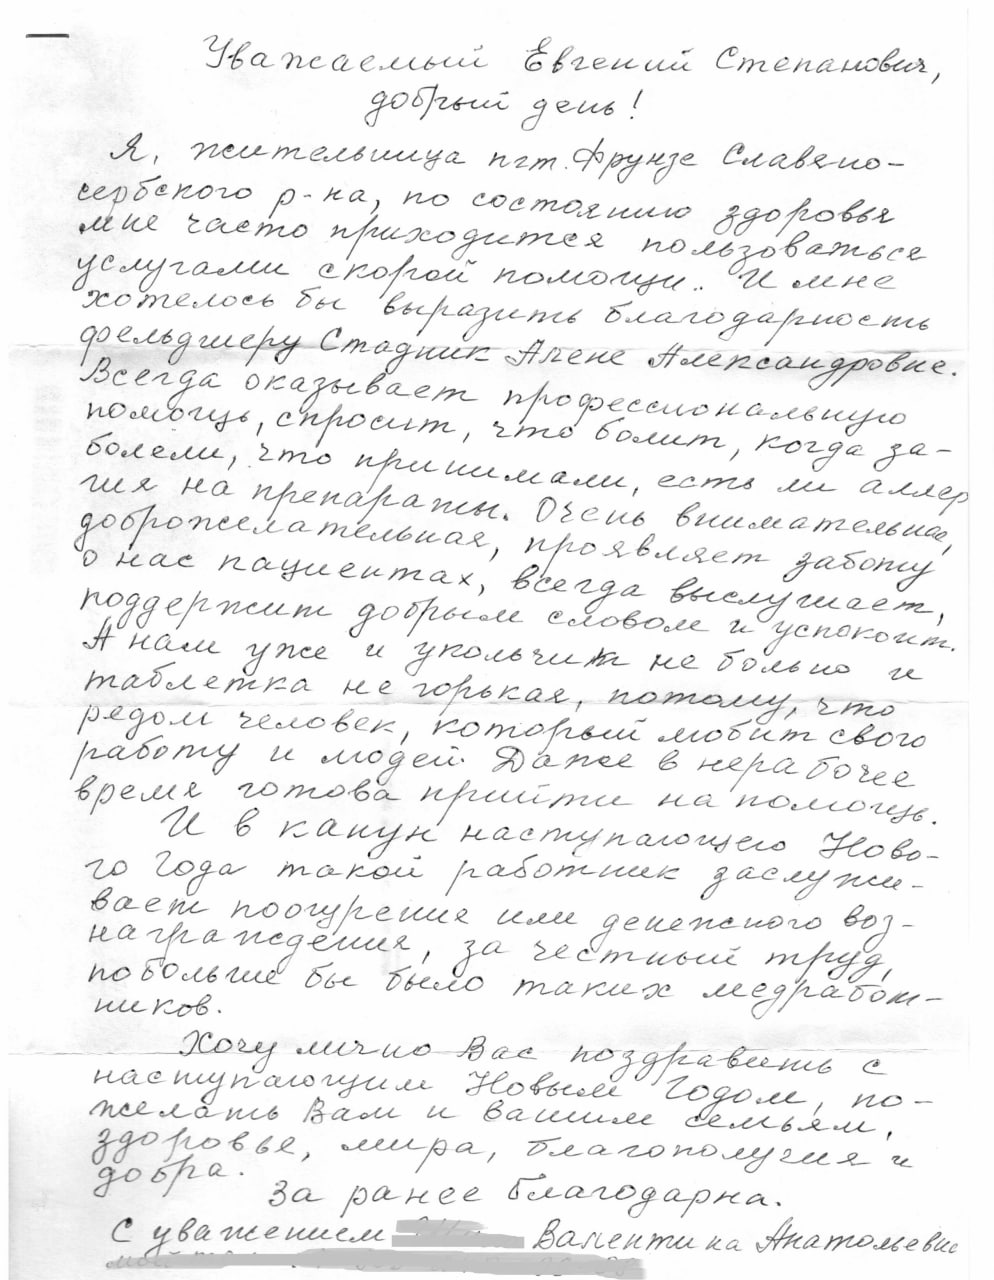 Уважаемый Евгений Степанович,
добрый день!
Я, жительница пгт. Фрунзе Славяно-
сербского р-на, по состоянию здоровья
мне часто приходится пользоваться
услугами скорой помощи.. И мне
хотелось бы выразить благодарность
фельдшеру Стадник Алене Александровне.
Всегда оказывает профессиональную
помощь, спросит, что болит, когда за-
болели, что принимали, есть ли аллер
гия на препараты. Очень внимательная,
доброжелательная, проявляет заботу
о нас пациентах, всегда выслушает,
поддержит добрым словом и успокоит.
А нам уже и укольчик не больно и
таблетка не горькая, потому, что
рядом человек, который любит свою
работу и людей. Даже в нерабочее
время готова прийти на помощь.
И в канун наступающего Ново-
го Года такой работник заслужи-
вает поощрения или денежного воз-
награждения, за честный труд,
побольше бы было таких медработ-
ников.
Хочу лично Вас поздравить с
наступающим Новым Годом, по-
желать Вам и Вашим семьям,
здоровье, мира, благополучия и
добра.
За ранее благодарна.
С уважением Валентина Анатольевна